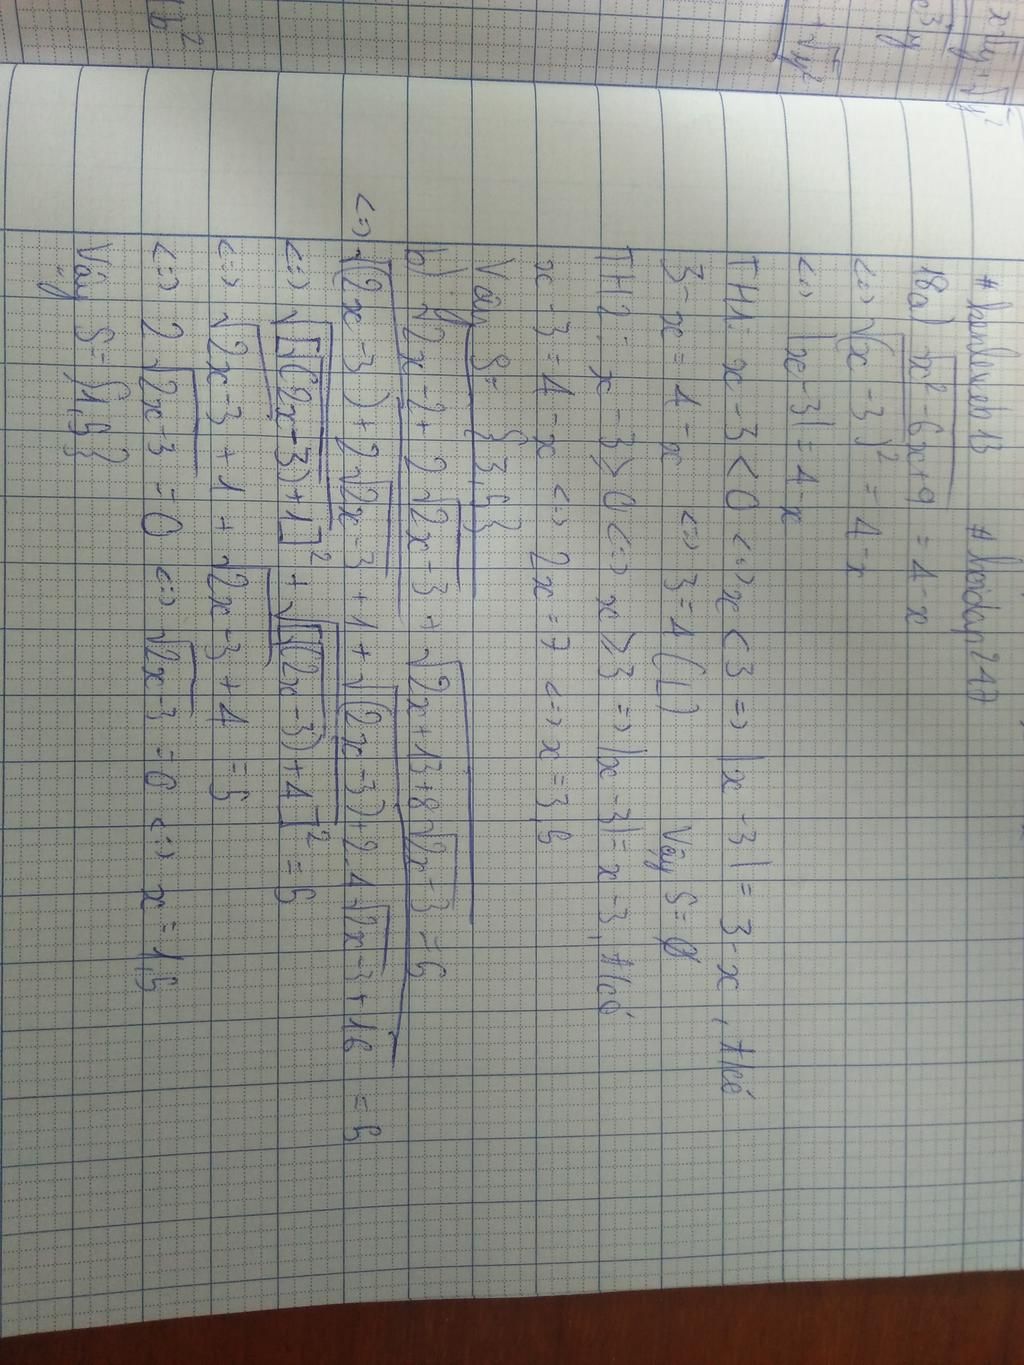 x√y + √y²
x³y
+ √y²
b²
#hanhineb 13 #hoidap247
18a) √x² - 6x + 9 = 4 - x
<=> √(x - 3)² = 4 - x
<=> |x - 3| = 4 - x
TH1: x - 3 < 0 <=> x < 3 => |x - 3| = 3 - x, ta có
3 - x = 4 - x <=> 3 = 4 (L) Vậy S = ∅
TH2: x - 3 ≥ 0 <=> x ≥ 3 => |x - 3| = x - 3, ta có
x - 3 = 4 - x <=> 2x = 7 <=> x = 3,5
Vậy S = {3,5}
b) √2x - 2 + 2√2x - 3 + √2x + 13 + 8√2x - 3 = 5
<=> √(2x - 3) + 2√2x - 3 + 1 + √(2x - 3) + 2.4√2x - 3 + 16 = 5
<=> √[√(2x - 3) + 1]² + √[√(2x - 3) + 4]² = 5
<=> √2x - 3 + 1 + √2x - 3 + 4 = 5
<=> 2√2x - 3 = 0 <=> √2x - 3 = 0 <=> x = 1,5
Vậy S = {1,5}